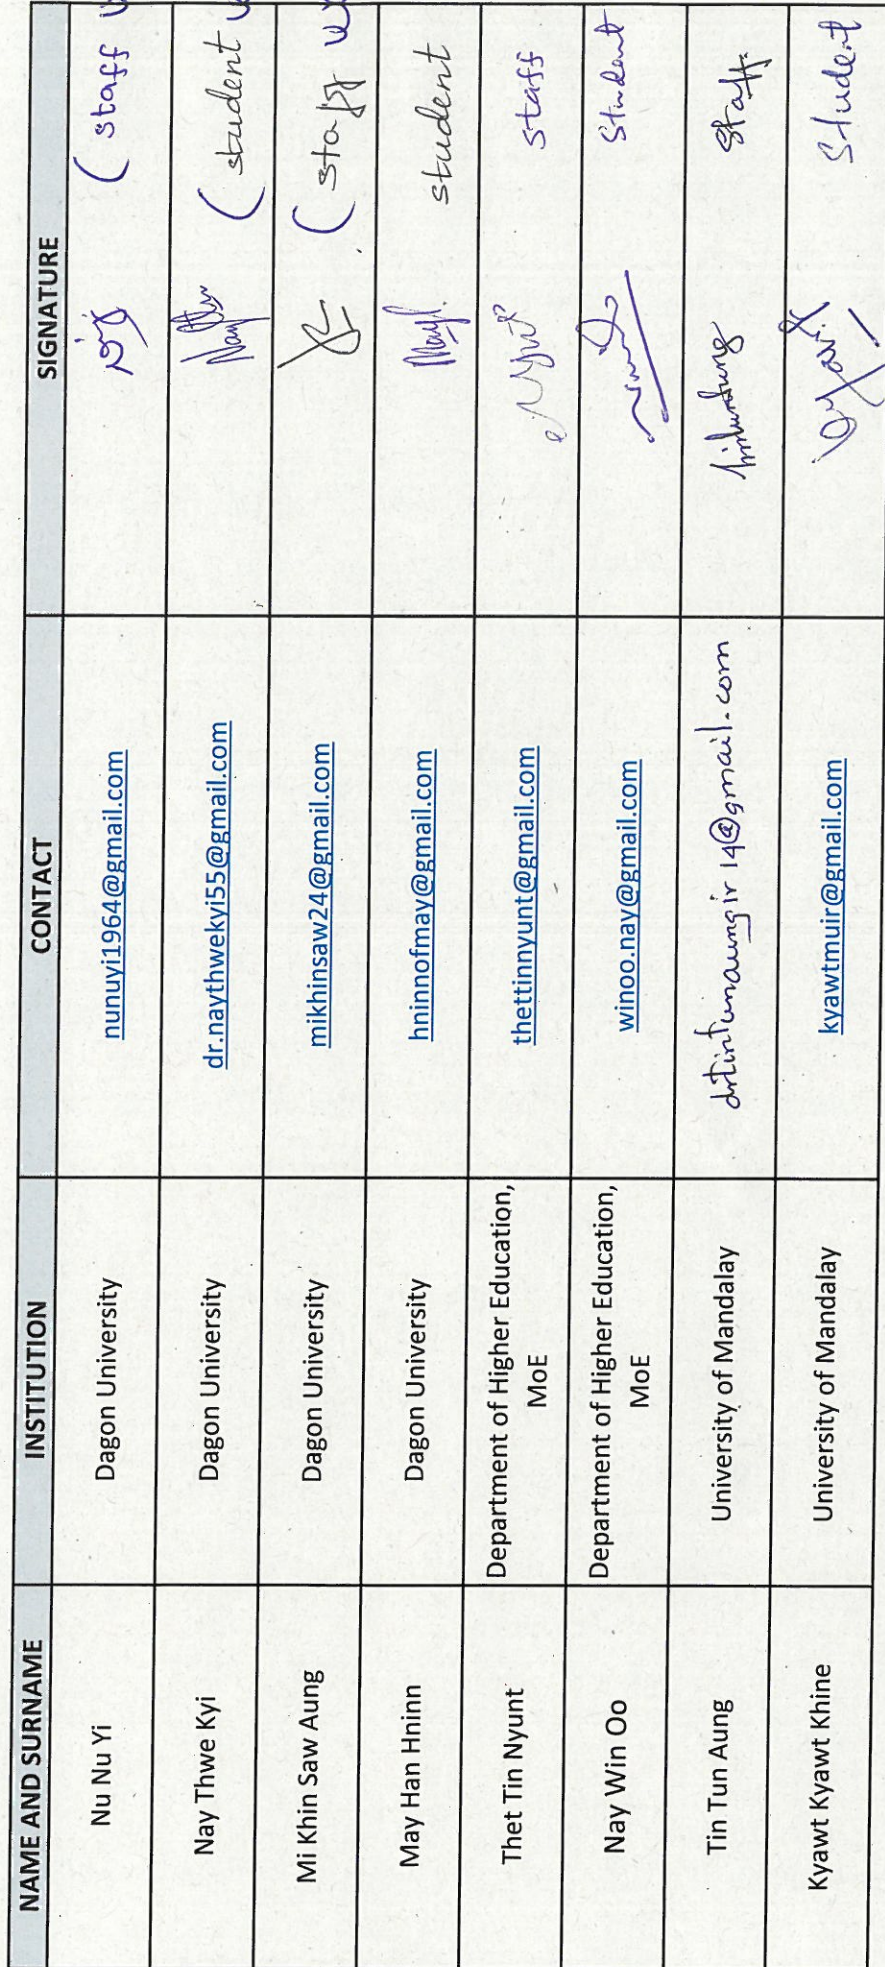 NAME AND SURNAME INSTITUTION CONTACT SIGNATURE
Nu Nu Yi Dagon University nunuyi1964@gmail.com (staff
Nay Thwe Kyi Dagon University dr.naythwekyi55@gmail.com (student
Mi Khin Saw Aung Dagon University mikhinsaw24@gmail.com (staff
May Han Hninn Dagon University hninnofmay@gmail.com student
Thet Tin Nyunt Department of Higher Education, thettinnyunt@gmail.com staff
MoE
Nay Win Oo Department of Higher Education, winoo.nay@gmail.com Student
MoE
Tin Tun Aung University of Mandalay drtintunaungir14@gmail.com Staff.
Kyawt Kyawt Khine University of Mandalay kyawtmuir@gmail.com Student